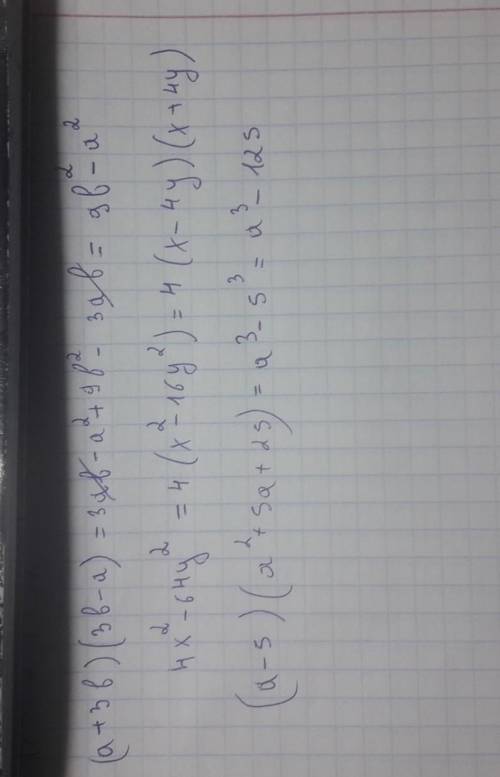 (a+3b)(3b-a) = 3ab - a² + 9b² - 3ab = 9b² - a²
4x² - 64y² = 4(x² - 16y²) = 4(x - 4y)(x + 4y)
(a-5)(a² + 5a + 25) = a³ - 5³ = a³ - 125